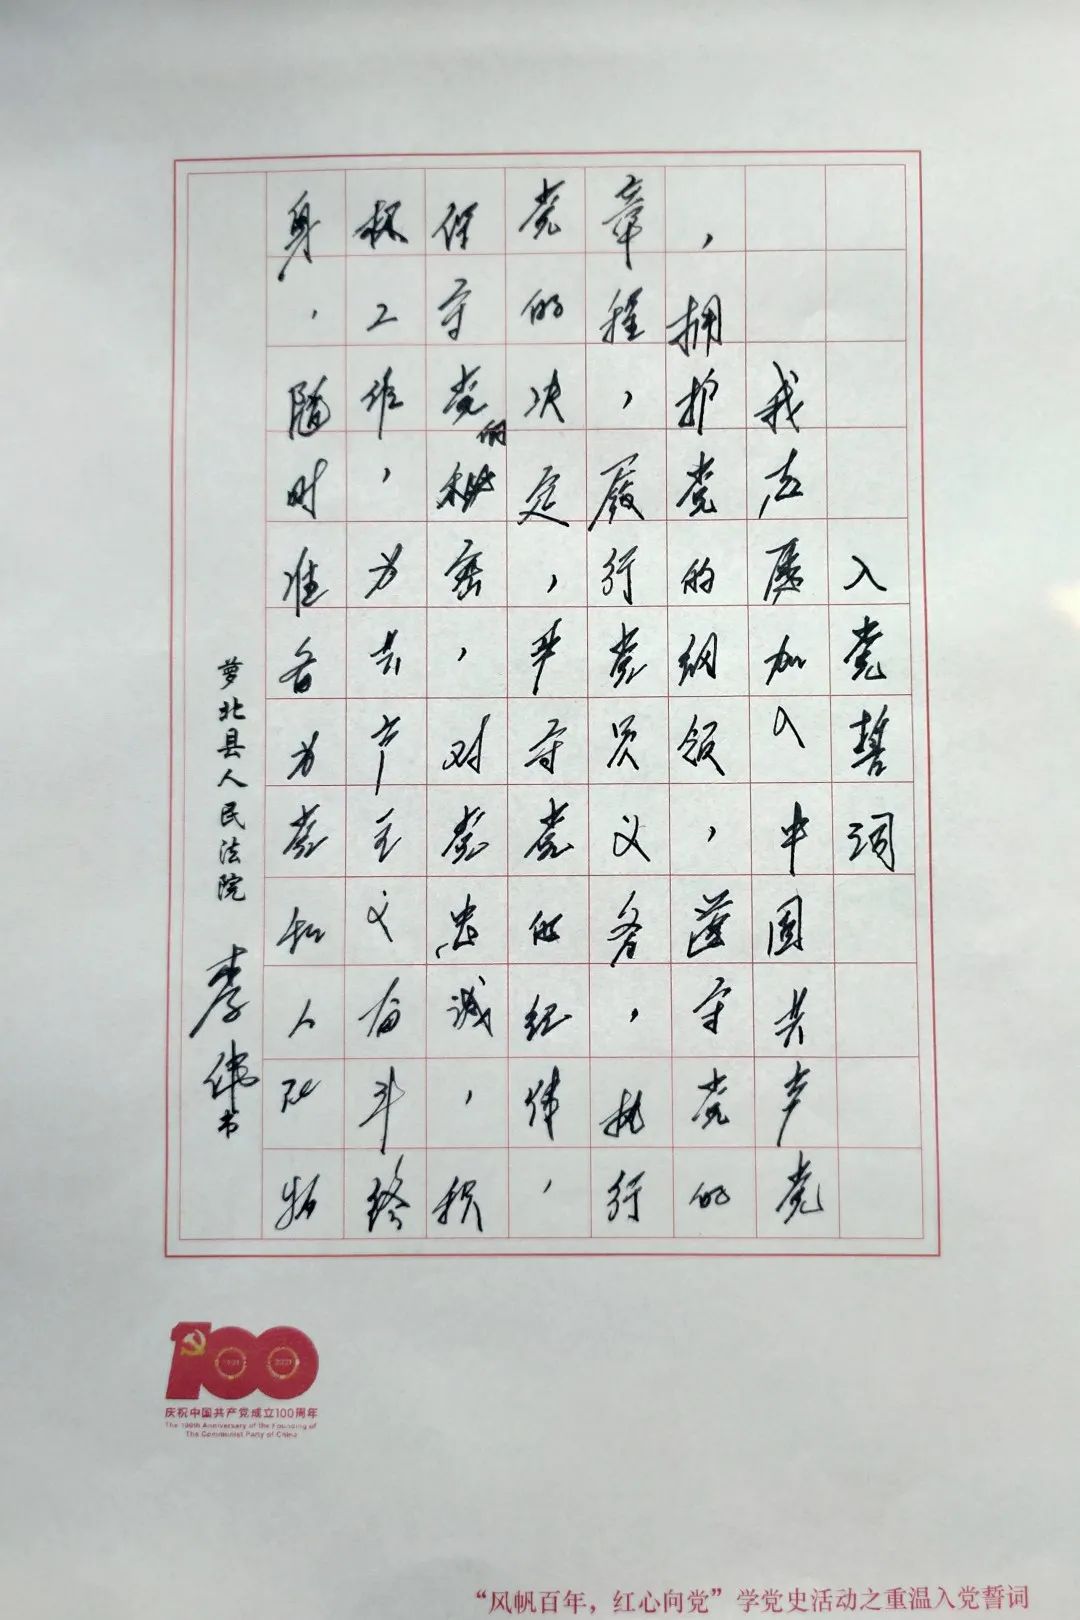 入党誓词
我志愿加入中国共产党
，拥护党的纲领，遵守党的
章程，履行党员义务，执行
党的决定，严守党的纪律，
保守党的秘密，对党忠诚，积
极工作，为共产主义奋斗终
身，随时准备为党和人民牺
萝北县人民法院 李伟书
100
1921 2021
庆祝中国共产党成立100周年
The 100th Anniversary of the Founding of
The Communist Party of China
“风帆百年，红心向党”学党史活动之重温入党誓词